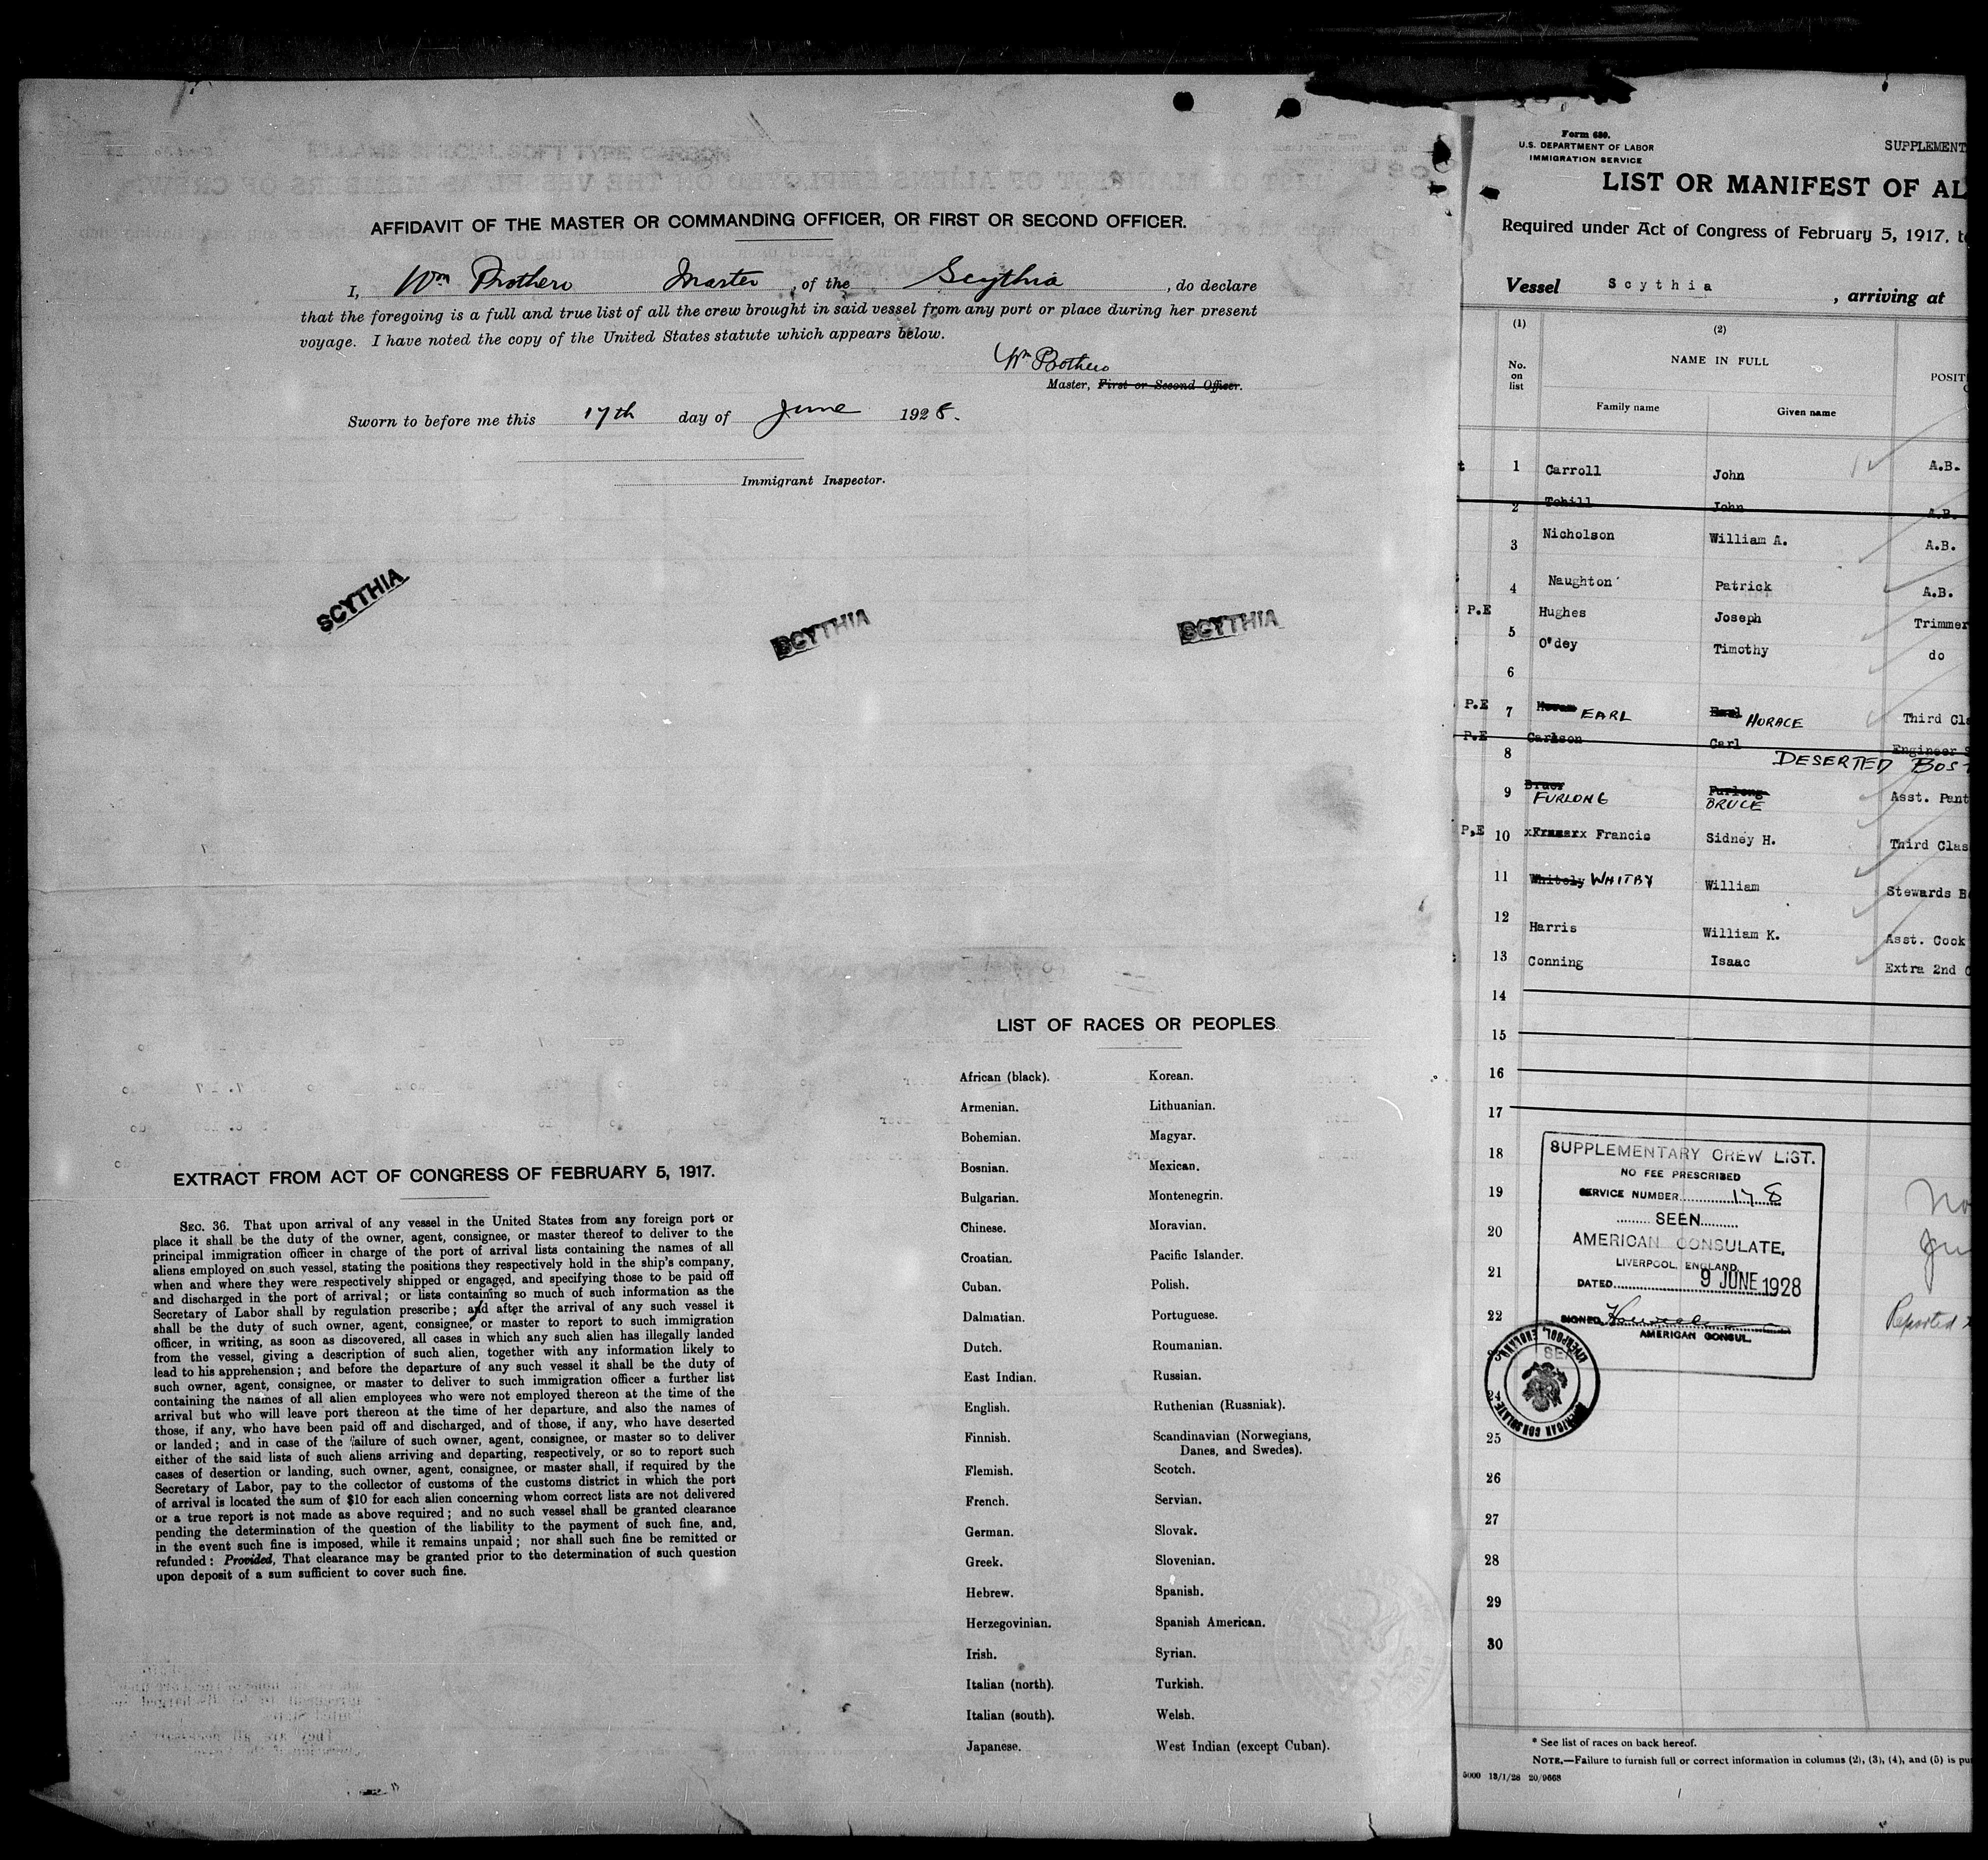 AFFIDAVIT OF THE MASTER OR COMMANDING OFFICER, OR FIRST OR SECOND OFFICER.
I, Wm Prothero Master, of the Scythia, do declare
that the foregoing is a full and true list of all the crew brought in said vessel from any port or place during her present
voyage. I have noted the copy of the United States statute which appears below.
Wm Prothero
Master, First or Second Officer.
Sworn to before me this 17th day of June 1928.
Immigrant Inspector.
SCYTHIA
SCYTHIA
SCYTHIA
EXTRACT FROM ACT OF CONGRESS OF FEBRUARY 5, 1917.
SEC. 36. That upon arrival of any vessel in the United States from any foreign port or
place it shall be the duty of the owner, agent, consignee, or master thereof to deliver to the
principal immigration officer in charge of the port of arrival lists containing the names of all
aliens employed on such vessel, stating the positions they respectively hold in the ship's company,
when and where they were respectively shipped or engaged, and specifying those to be paid off
and discharged in the port of arrival; or lists containing so much of such information as the
Secretary of Labor shall by regulation prescribe; and after the arrival of any such vessel it
shall be the duty of such owner, agent, consignee, or master to report to such immigration
officer, in writing, as soon as discovered, all cases in which any such alien has illegally landed
from the vessel, giving a description of such alien, together with any information likely to
lead to his apprehension; and before the departure of any such vessel it shall be the duty of
such owner, agent, consignee, or master to deliver to such immigration officer a further list
containing the names of all alien employees who were not employed thereon at the time of the
arrival but who will leave port thereon at the time of her departure, and also the names of
those, if any, who have been paid off and discharged, and of those, if any, who have deserted
or landed; and in case of the failure of such owner, agent, consignee, or master so to deliver
either of the said lists of such aliens arriving and departing, respectively, or so to report such
cases of desertion or landing, such owner, agent, consignee, or master shall, if required by the
Secretary of Labor, pay to the collector of customs of the customs district in which the port
of arrival is located the sum of $10 for each alien concerning whom correct lists are not delivered
or a true report is not made as above required; and no such vessel shall be granted clearance
pending the determination of the question of the liability to the payment of such fine, and,
in the event such fine is imposed, while it remains unpaid; nor shall such fine be remitted or
refunded: Provided, That clearance may be granted prior to the determination of such question
upon deposit of a sum sufficient to cover such fine.
LIST OF RACES OR PEOPLES
African (black). Korean.
Armenian. Lithuanian.
Bohemian. Magyar.
Bosnian. Mexican.
Bulgarian. Montenegrin.
Chinese. Moravian.
Croatian. Pacific Islander.
Cuban. Polish.
Dalmatian. Portuguese.
Dutch. Roumanian.
East Indian. Russian.
English. Ruthenian (Russniak).
Finnish. Scandinavian (Norwegians,
Danes, and Swedes).
Flemish. Scotch.
French. Servian.
German. Slovak.
Greek. Slovenian.
Hebrew. Spanish.
Herzegovinian. Spanish American.
Irish. Syrian.
Italian (north). Turkish.
Italian (south). Welsh.
Japanese. West Indian (except Cuban).
Form 680.
U.S. DEPARTMENT OF LABOR
IMMIGRATION SERVICE
SUPPLEMENT
LIST OR MANIFEST OF AL
Required under Act of Congress of February 5, 1917, t
Vessel Scythia, arriving at
(1) (2)
No. on list
NAME IN FULL
POSIT
Family name Given name
1 Carroll John A.B.
2 Tohill John A.B.
3 Nicholson William A. A.B.
4 Naughton Patrick A.B.
P.E 5 Hughes Joseph Trimmer
6 O'dey Timothy do
P.E 7 EARL HORACE Third Cla
P.E 8 Carlson Carl Engineer S
DESERTED BOST
9 Bruce Furlong Asst. Pant
FURLONG BRUCE
P.E 10 Francis Sidney H. Third Clas
11 Whitely WHITBY William Stewards B
12 Harris William K. Asst. Cook
13 Conning Isaac Extra 2nd C
14
15
16
17
18
19
20
21
22
24
25
26
27
28
29
30
SUPPLEMENTARY CREW LIST.
NO FEE PRESCRIBED
SERVICE NUMBER 178
SEEN
AMERICAN CONSULATE,
LIVERPOOL, ENGLAND.
DATED 9 JUNE 1928
SIGNED
AMERICAN CONSUL.
AMERICAN CONSULATE LIVERPOOL, ENGLAND
SEAL
No
Ju
Reported
* See list of races on back hereof.
NOTE.—Failure to furnish full or correct information in columns (2), (3), (4), and (5) is pu
5000 13/1/28 20/9668